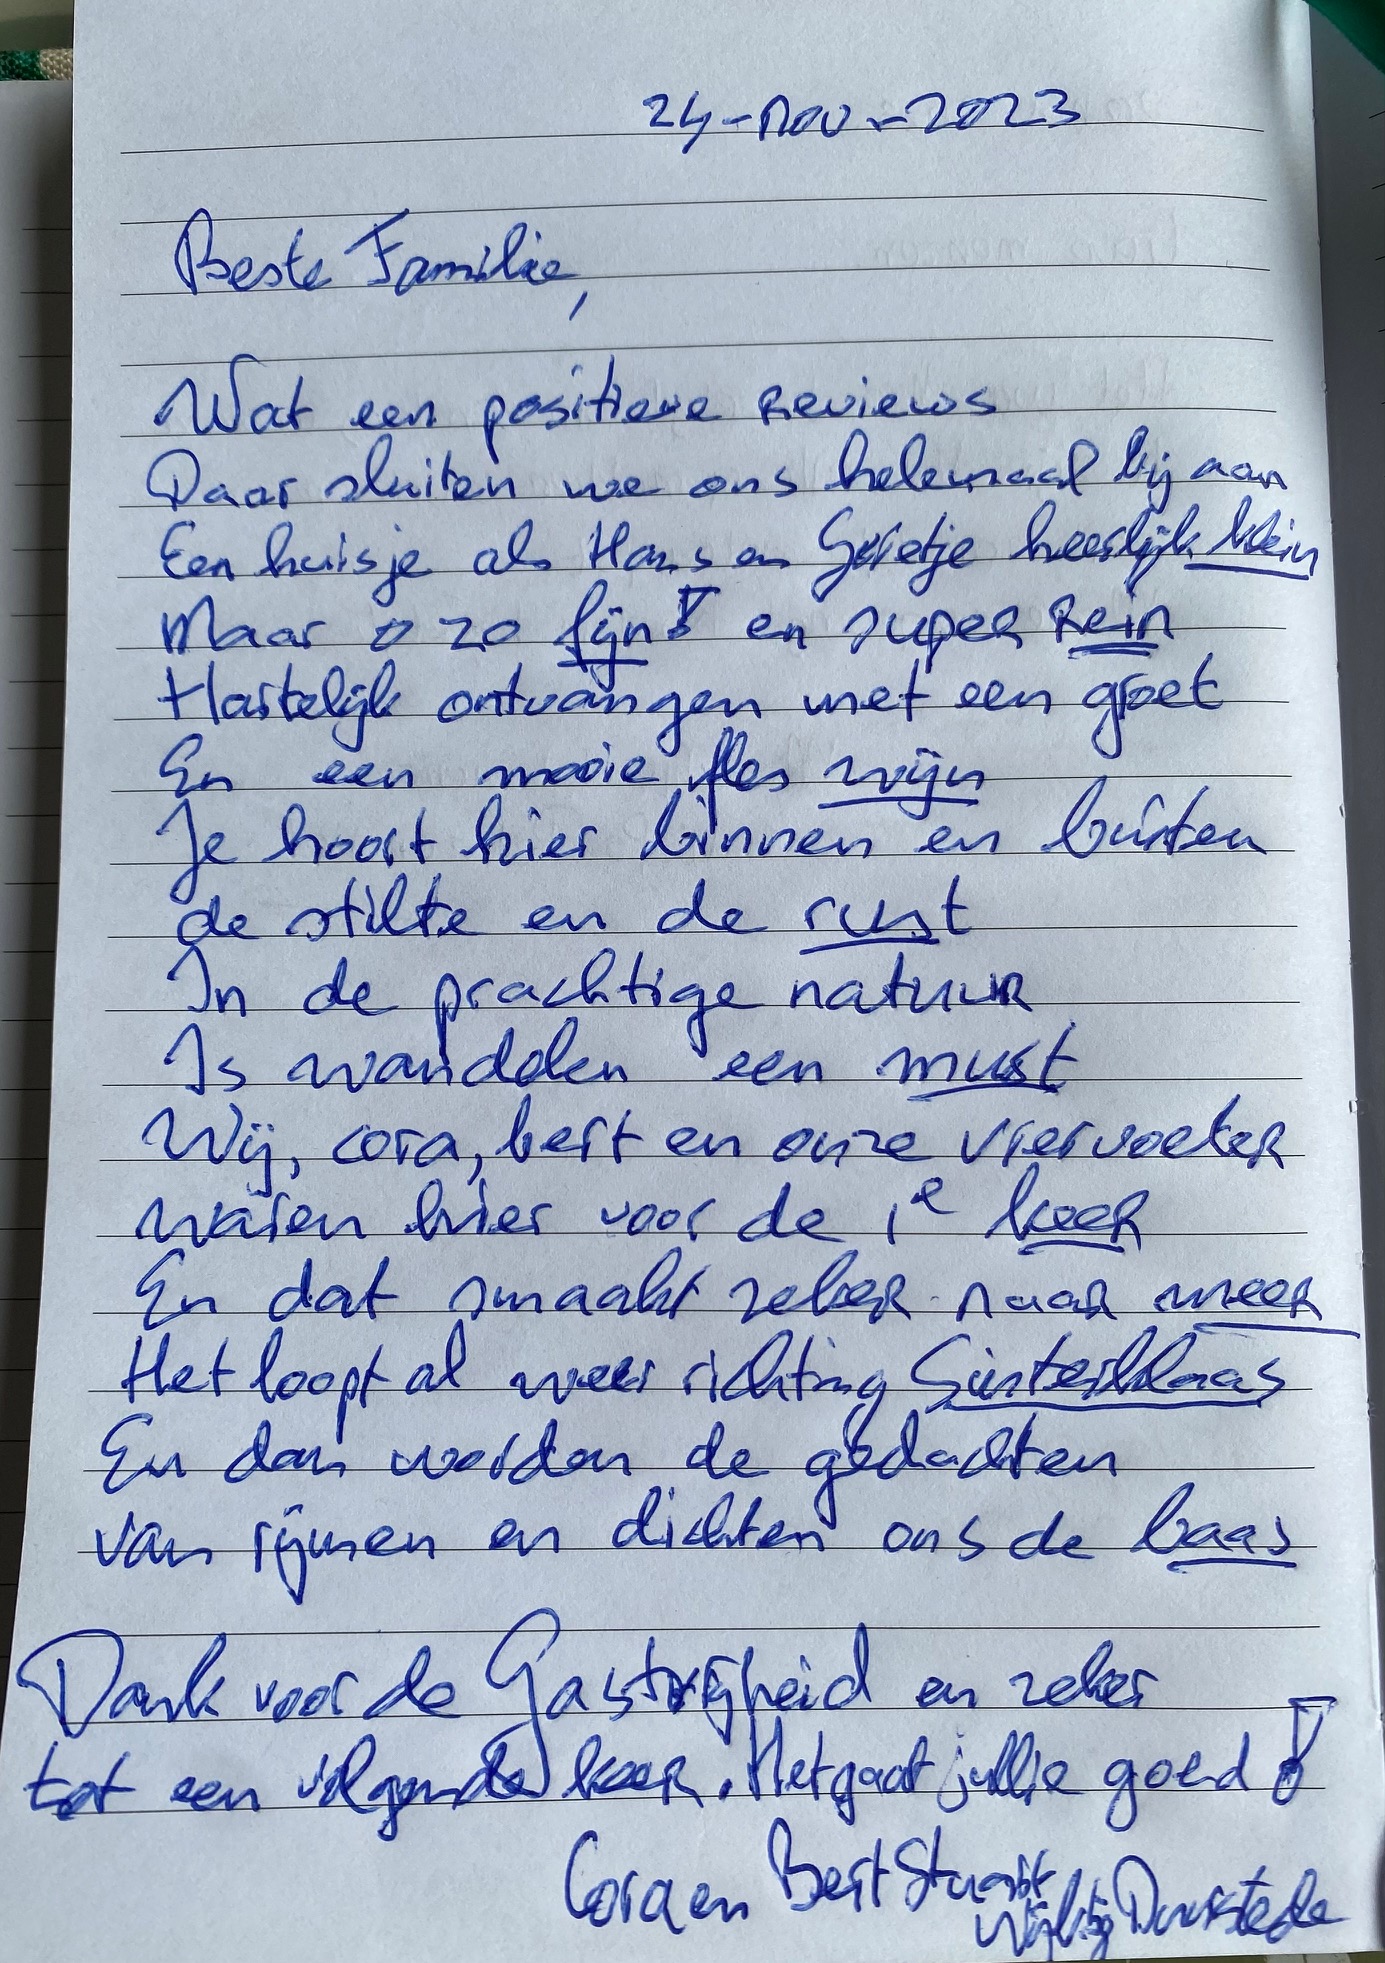 24-nov-2023
Beste Familie,
Wat een positieve Reviews
Daar sluiten we ons helemaal bij aan
Een huisje als Hans en Grietje heerlijk klein
Maar o zo fijn! en super Rein
Hartelijk ontvangen met een groet
En een mooie fles wijn
Je hoort hier binnen en buiten
de stilte en de rust
In de prachtige natuur
Is wandelen een must
Wij, cora, bert en onze viervoeter
waren hier voor de 1e keer
En dat smaakt zeker naar meer
Het loopt al weer richting Sinterklaas
En dan worden de gedachten
van rijmen en dichten ons de baas
Dank voor de Gastvrijheid en zeker
tot een volgende keer. Het gaat jullie goed!
Cora en Bert
Wijk bij Duurstede